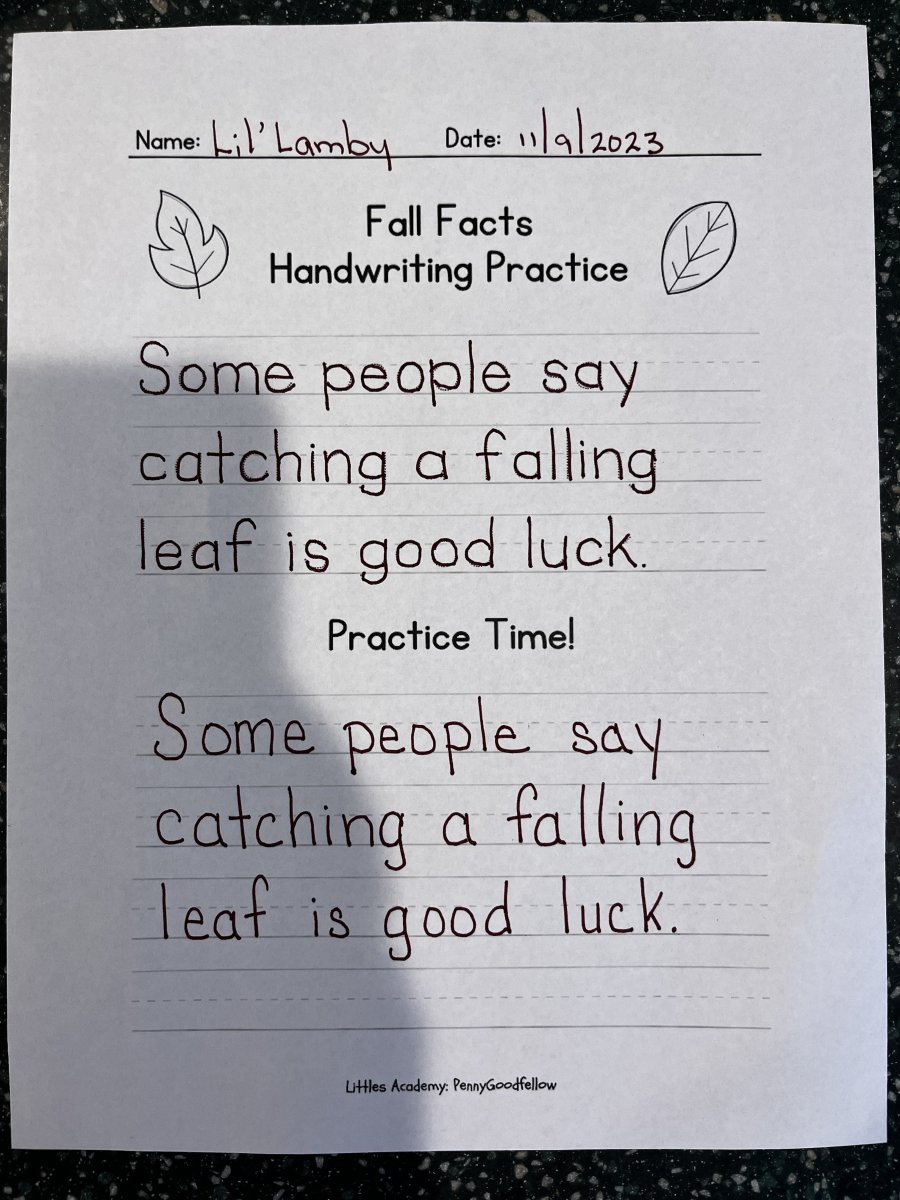 Name: Lil' Lamby Date: 11/9/2023
Fall Facts
Handwriting Practice
Some people say
catching a falling
leaf is good luck.
Practice Time!
Some people say
catching a falling
leaf is good luck.
Littles Academy: PennyGoodfellow